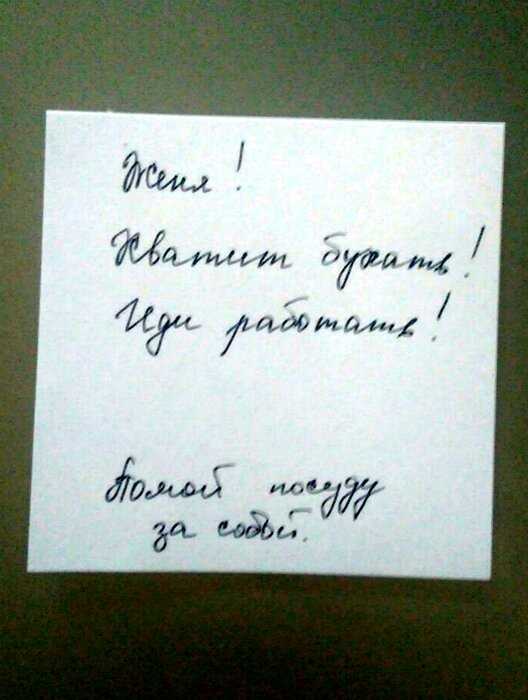 Женя!
Хватит бухать!
Иди работать!
Помой посуду
за собой.